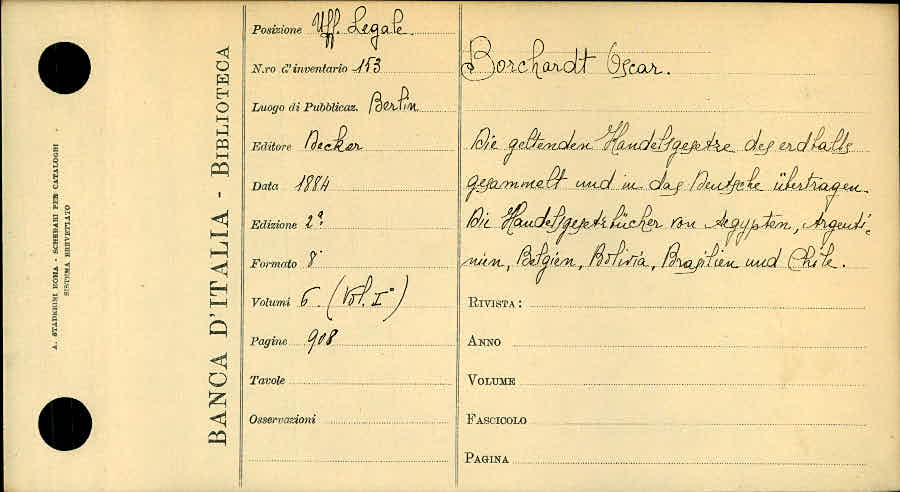 A. STADERINI ROMA - SCHEDARI PER CATALOGHI
SISTEMA BREVETTATO
BANCA D'ITALIA - BIBLIOTECA
Posizione Uff. Legale.
N.ro d'inventario 153
Luogo di Pubblicaz. Berlin
Editore Decker
Data 1884
Edizione 2ª
Formato 8°
Volumi 6. (Vol. I°)
Pagine 908
Tavole
Osservazioni
Borchardt Oscar.
Die geltenden Handelsgesetze des erdballs
gesammelt und in das Deutsche übertragen.
Die Handelsgesetzbücher von Aegypten, Argenti-
nien, Belgien, Bolivia, Brasilien und Chile.
RIVISTA:
ANNO
VOLUME
FASCICOLO
PAGINA